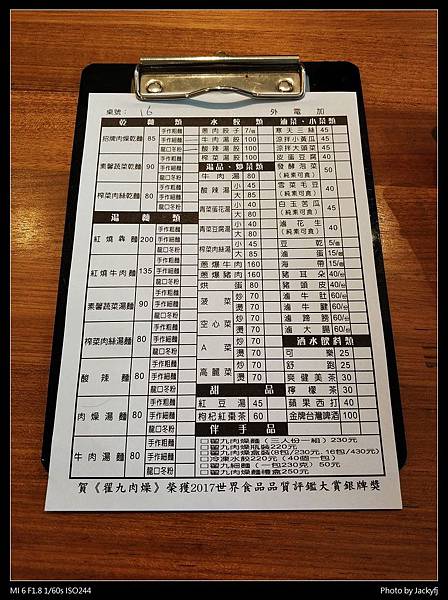 桌號: 16 外 電 加
乾 麵 類
招牌肉燥乾麵 85 手作粗麵 手作細麵 龍口冬粉
素馨蔬菜乾麵 90 手作粗麵 手作細麵 龍口冬粉
榨菜肉絲乾麵 80 手作粗麵 手作細麵 龍口冬粉
湯 麵 類
紅燒犇麵 200 手作粗麵 手作細麵 龍口冬粉
紅燒牛肉麵 135 手作粗麵 手作細麵 龍口冬粉
素馨蔬菜湯麵 90 手作粗麵 手作細麵 龍口冬粉
榨菜肉絲湯麵 80 手作粗麵 手作細麵 龍口冬粉
酸辣麵 80 手作粗麵 手作細麵 龍口冬粉
肉燥湯麵 80 手作粗麵 手作細麵 龍口冬粉
牛肉湯麵 80 手作粗麵 手作細麵 龍口冬粉
水 餃 類
蔥肉餃子 7/個
牛肉湯餃 100
酸辣湯餃 100
榨菜湯餃 100
湯品、炒菜類
牛肉湯 80
酸辣湯 小 40 大 80
青菜蛋花湯 小 40 大 80
青菜豆腐湯 小 40 大 80
榨菜肉絲湯 小 45 大 85
蔥爆牛肉 160
蔥爆豬肉 160
烘蛋 80
菠菜 炒 70 燙 70
空心菜 炒 70 燙 70
A菜 炒 70 燙 70
高麗菜 炒 70 燙 70
甜 品
紅豆湯 45
枸杞紅棗茶 60
滷菜、小菜類
寒天三絲 45
涼拌小黃瓜 45
涼拌大頭菜 45
皮蛋豆腐 40
發酵泡菜 (純素可食) 50
雪菜毛豆 (純素可食) 40
白玉苦瓜 (純素可食) 45
滷花生 (純素可食) 40
豆乾 5/個
滷蛋 15/個
海帶 15/個
豬耳朵 40/份
豬頭皮 40/份
滷牛肚 60/份
滷牛腱 60/份
滷蹄膀 60/份
滷大腸 60/份
酒水飲料類
可樂 25
舒跑 25
爽健美茶 30
檸檬茶 30
蘋果西打 40
金牌台灣啤酒 100
伴 手 品
□翟九肉燥麵(三人份一組)230元
□翟九肉燥瓶裝220元
□翟九肉燥盒裝(8包/230元、16包/430元)
□冷凍水餃220元(40個一包)
□翟九細麵(一包230克)50元
□翟九肉燥麵禮盒250元
賀《翟九肉燥》榮獲2017世界食品品質評鑑大賞銀牌獎
MI 6 F1.8 1/60s ISO244
Photo by Jackyfj